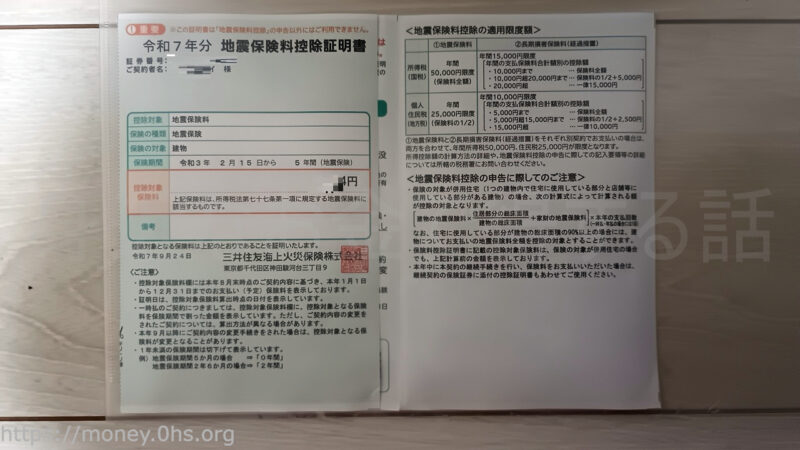 重要 ※この証明書は「地震保険料控除」の申告以外にはご利用できません。
令和7年分 地震保険料控除証明書
証券番号:
ご契約者名: 様
控除対象 地震保険料
保険の種類 地震保険
保険の対象 建物
保険期間 令和3年 2月15日から 5年間(地震保険)
控除対象保険料 円
上記保険料は、所得税法第七十七条第一項に規定する地震保険料に
該当するものです。
備考
控除対象となる保険料は上記のとおりであることを証明いたします。
令和7年9月24日 三井住友海上火災保険株式会社
東京都千代田区神田駿河台三丁目9
<ご注意>
・控除対象保険料欄には本年8月末時点のご契約内容に基づき、本年1月1日
から12月31日までのお支払い(予定)保険料を表示しております。
・証明日は、控除対象保険料算出時点の日付を表示しています。
・一時払のご契約につきましては、控除対象保険料欄に、控除対象となる保険
料を保険期間で割った金額を表示しています。ただし、ご契約内容の変更を
されたご契約については、算出方法が異なる場合があります。
・本年9月以降にご契約内容の変更手続きをされた場合は、控除対象となる保
険料が変更となることがあります。
・1年未満の保険期間は切下げて表示しています。
例)地震保険期間5か月の場合 ⇒「0年間」
地震保険期間2年6か月の場合⇒「2年間」
<地震保険料控除の適用限度額>
①地震保険料 ②長期損害保険料(経過措置)
所得税(国税) 年間50,000円限度(保険料全額)
年間15,000円限度
年間の支払保険料合計額別の控除額
・10,000円まで … 保険料全額
・10,000円超20,000円まで … 保険料の1/2+5,000円
・20,000円超 … 一律15,000円
個人住民税(地方税) 年間25,000円限度(保険料の1/2)
年間10,000円限度
年間の支払保険料合計額別の控除額
・5,000円まで … 保険料全額
・5,000円超15,000円まで … 保険料の1/2+2,500円
・15,000円超 … 一律10,000円
①地震保険料と②長期損害保険料(経過措置)をそれぞれ別契約でお支払いの場合は、
両方を合わせて、年間所得税50,000円、住民税25,000円が限度となります。
所得控除額の計算方法の詳細や、地震保険料控除の申告に際しての記入要領等の詳細
については所轄の税務署等にお問い合わせください。
<地震保険料控除の申告に際してのご注意>
・保険の対象が併用住宅(1つの建物内で住宅に使用している部分と店舗等に
使用している部分がある建物)の場合、次の計算式によって計算される額
が控除の対象となります。
建物の地震保険料×住居部分の総床面積/建物の総床面積+家財の地震保険料
×本年の支払回数
なお、住宅に使用している部分が建物の総床面積の90%以上の場合には、建
物についてお支払いの地震保険料全額を控除の対象とすることができます。
・保険料控除証明書に記載の控除対象保険料は、保険の対象が併用住宅の場合
でも、上記計算前の金額を表示しています。
・本年中に本契約の継続手続きを行い、保険料をお支払いいただいた場合は、
継続契約の保険証券に添付の控除証明書もあわせてご使用ください。
る話
https://money.0hs.org